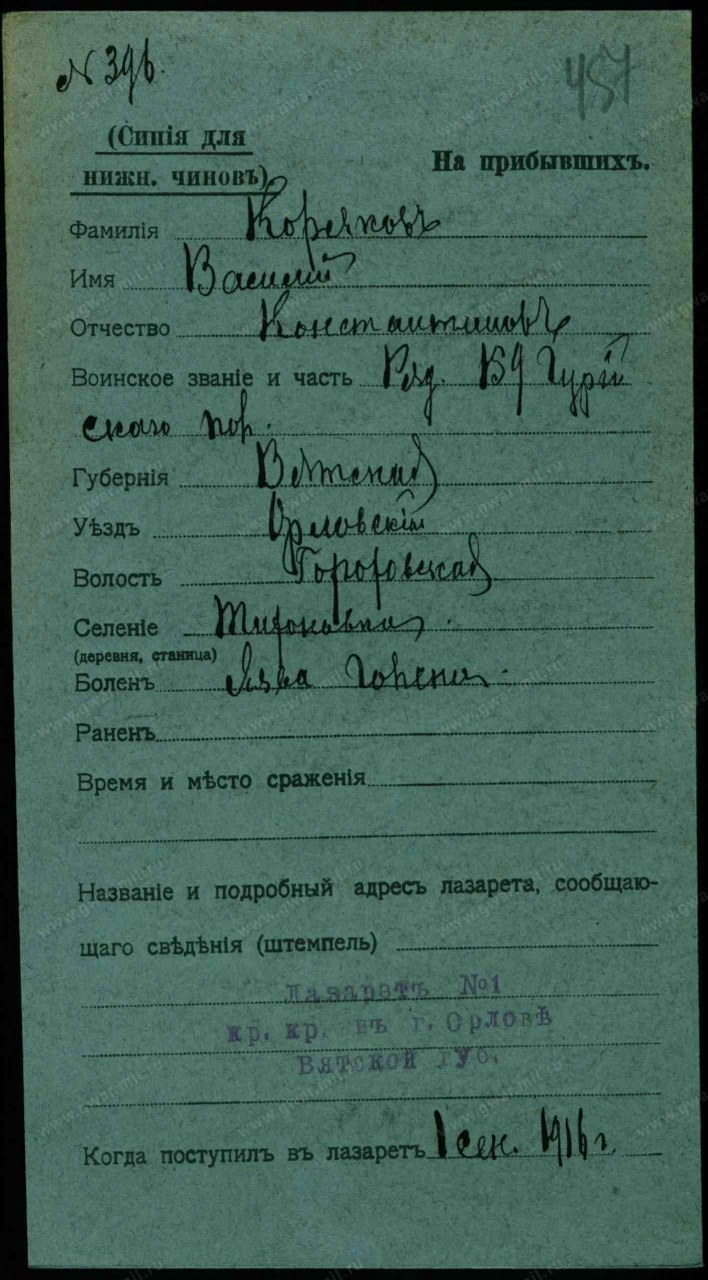 № 396.
457
(Синія для
нижн. чиновъ)
На прибывшихъ.
Фамилія Коряковъ
Имя Василий
Отчество Константиновъ
Воинское званіе и часть Ряд. 159 Гурій
скаго пол.
Губернія Вятская
Уѣздъ Орловскій
Волость
Селеніе
(деревня, станица)
Боленъ Язва голени.
Раненъ
Время и мѣсто сраженія
Названіе и подробный адресъ лазарета, сообщаю-
щаго свѣдѣнія (штемпель)
Лазаретъ №1
кр. кр. въ г. Орловѣ
Вятской губ.
Когда поступилъ въ лазаретъ 1 сен. 1916 г.